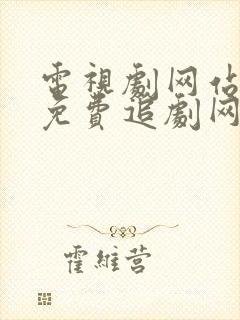 電視劇网站
免費追劇网
霍維营